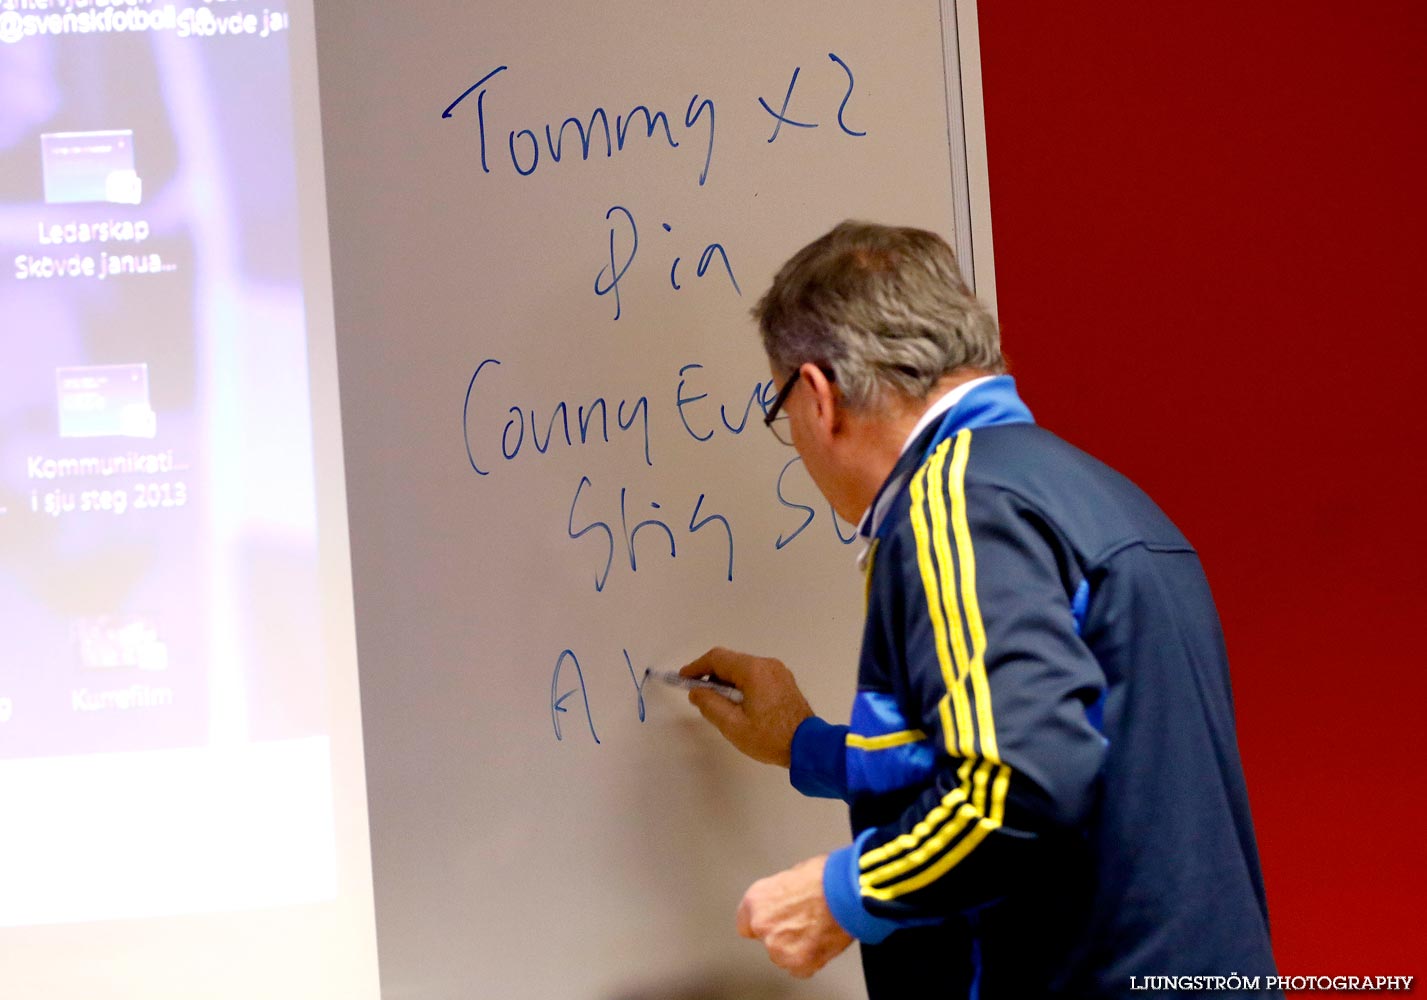 @svenskfotboll.se
Skövde jan
Ledarskap
Skövde janua...
Kommunikati...
i sju steg 2013
Kurrefilm
Tommy x2
Pia
Conny Eve
Stig S
A
LJUNGSTRÖM PHOTOGRAPHY